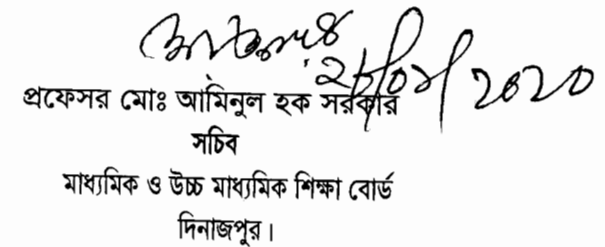 প্রফেসর মোঃ আমিনুল হক সরকার
সচিব
মাধ্যমিক ও উচ্চ মাধ্যমিক শিক্ষা বোর্ড
দিনাজপুর।